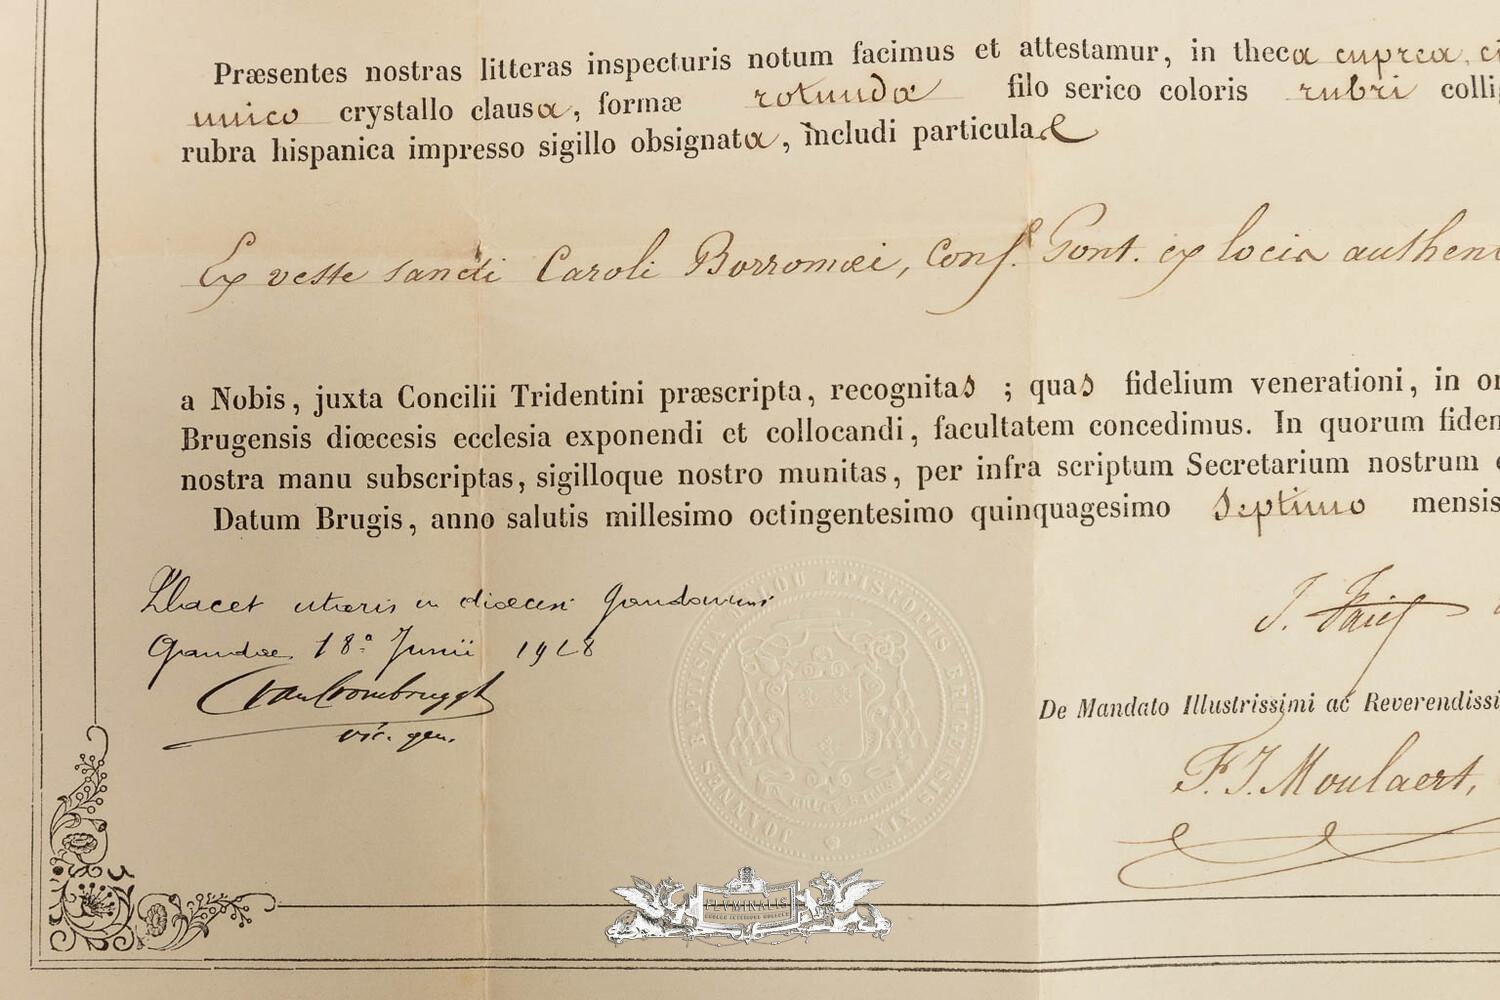 Præsentes nostras litteras inspecturis notum facimus et attestamur, in theca cuprea,
unico crystallo clausa, formæ rotundæ filo serico coloris rubri
rubra hispanica impresso sigillo obsignata, includi particulae
Ex veste sancti Caroli Borromæi, Conf. Pont. ex locis
a Nobis, juxta Concilii Tridentini præscripta, recognitas ; quas fidelium venerationi, in
Brugensis diœcesis ecclesia exponendi et collocandi, facultatem concedimus. In quorum
nostra manu subscriptas, sigilloque nostro munitas, per infra scriptum Secretarium nostrum
Datum Brugis, anno salutis millesimo octingentesimo quinquagesimo Septimo mensis
Placet in diœcesi
Gandæ 18ª Junii 1928
vic. gen.
JOANNES BAPTISTA MALOU EPISCOPUS BRUGENSIS XIX
De Mandato Illustrissimi ac
F. J. Moulaert,
FLVMINALIS